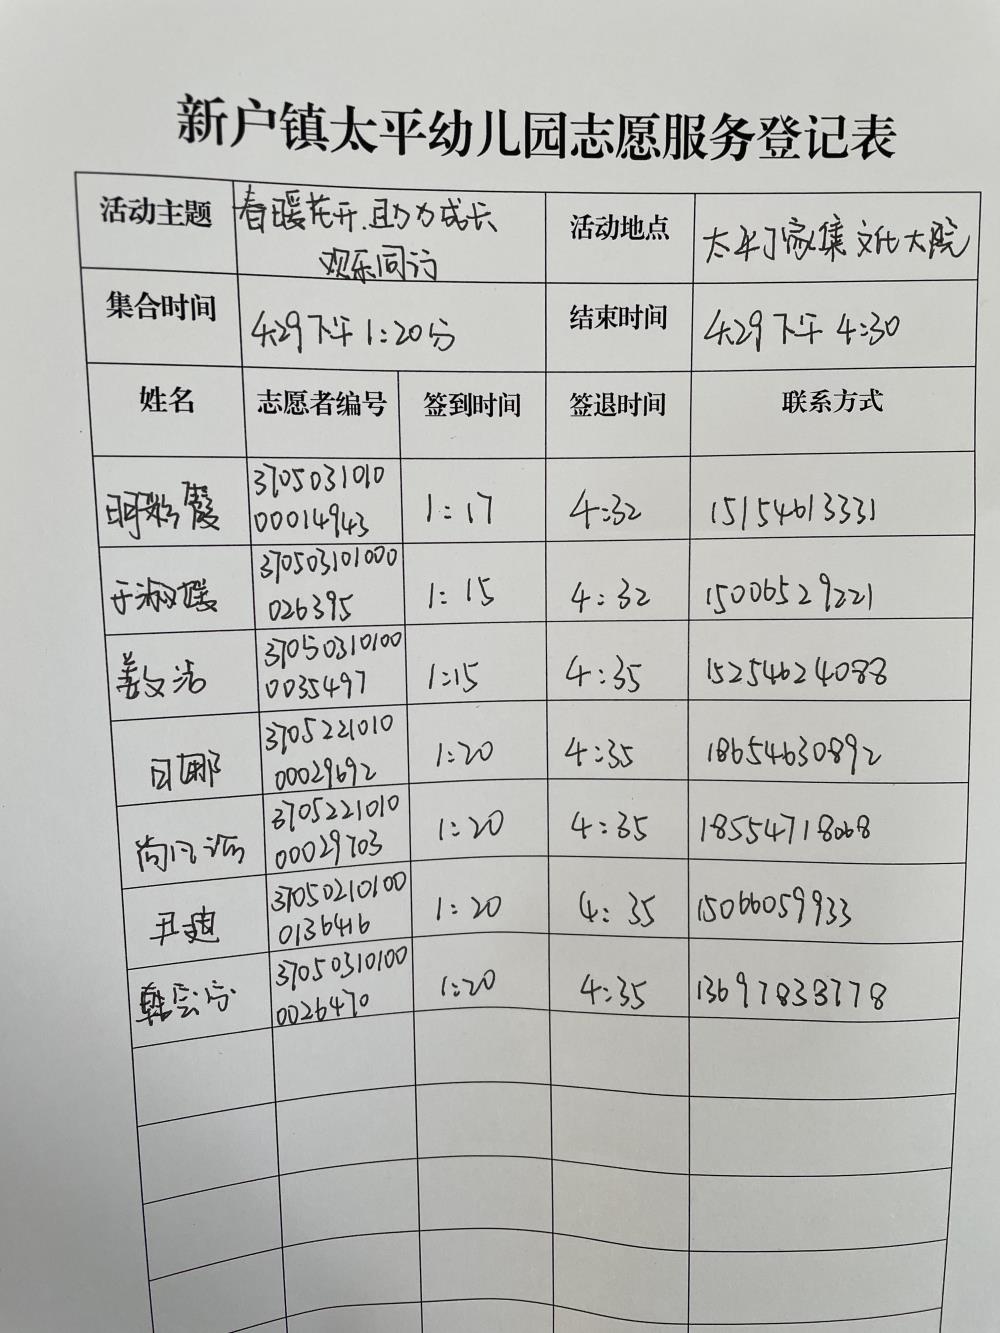 新户镇太平幼儿园志愿服务登记表
活动主题
春暖花开.助力成长
欢乐同行
活动地点
太平丁家集文化大院
集合时间
4.29下午1:20分
结束时间
4.29下午4:30
姓名
志愿者编号
签到时间
签退时间
联系方式
3705031010
00014943
1:17
4:32
15154613331
于淑媛
370503101000
026395
1:15
4:32
15006529221
姜文洁
37050310100
0035497
1:15
4:35
15254624088
3705221010
00029692
1:20
4:35
18654630892
3705221010
00029703
1:20
4:35
18554718068
37050210100
0136416
1:20
4:35
15066059933
韩云芬
37050310100
0026470
1:20
4:35
13697833778